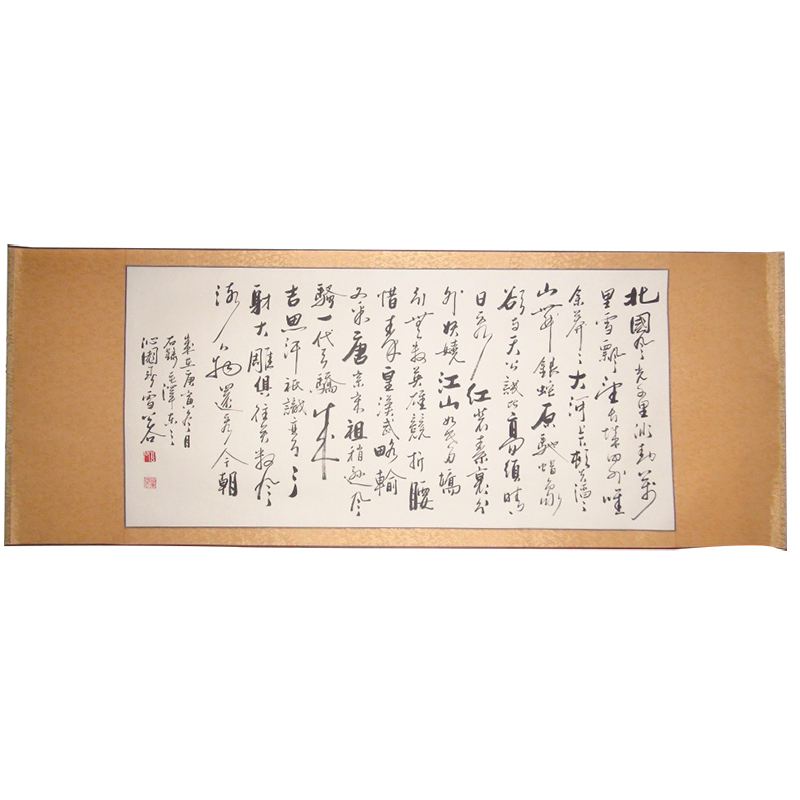 北國風光千里冰封萬
里雪飄望長城內外唯
余莽々大河上下頓失滔々
山舞銀蛇原馳蠟象
欲與天公試比高須晴
日看紅裝素裹分
外妖嬈江山如此多嬌
引無數英雄競折腰
惜秦皇漢武略輸
文采唐宗宋祖稍遜風
騷一代天驕成
吉思汗祇識彎弓
射大雕俱往矣數風
流人物還看今朝
歲在庚寅冬月
毛澤東
沁園春雪